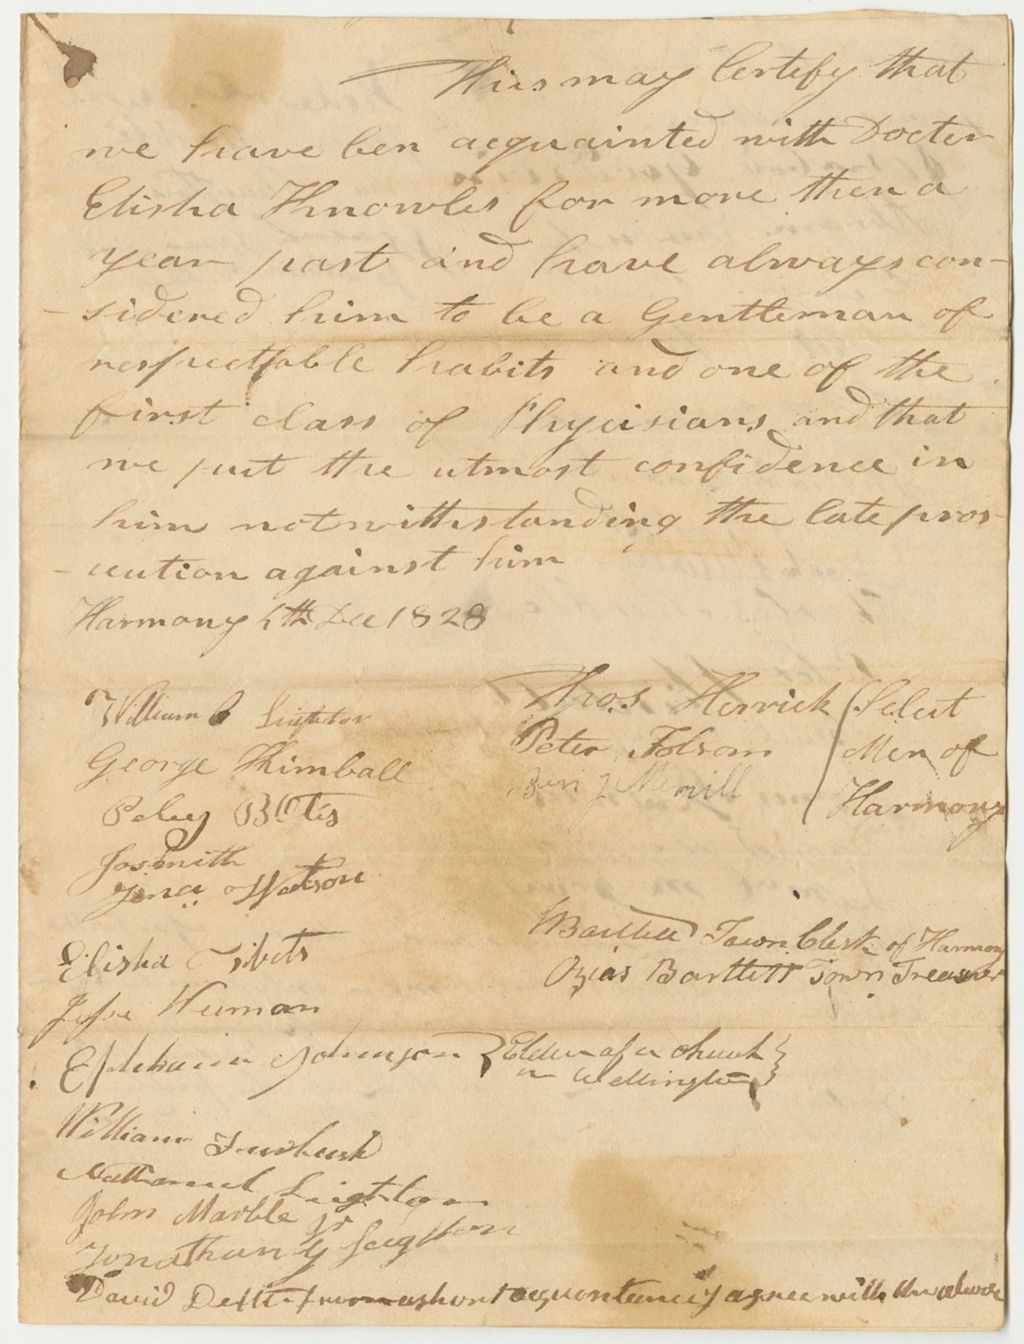 This may Certify that
we have ben acquainted with Docter
Elisha Knowles for more then a
year past and have always con-
-sidered him to be a Gentleman of
respectfable habits and one of the
first class of Phycisians and that
we put the utmost confidence in
him notwithstanding the late pros-
-ecution against him
Harmony 5th Dec 1828
William Leighton
George Kimball
Peleg B Otis
Jos Smith
Watson
Elisha Tibets
Jesse Wieman
Ephraim Johnson } Elder of a church
in Wellington }
William Furbush
Nathaniel Leighton
John Marble Jr
Jonathan G Leighton
David from a short acquontancy agree with the above
Thos. Herrick
Peter Folsom
Benj Merrill
Select
Men of
Harmony
Bartlett Town Clerk of Harmony
Ozias Bartlett Town Treasurer